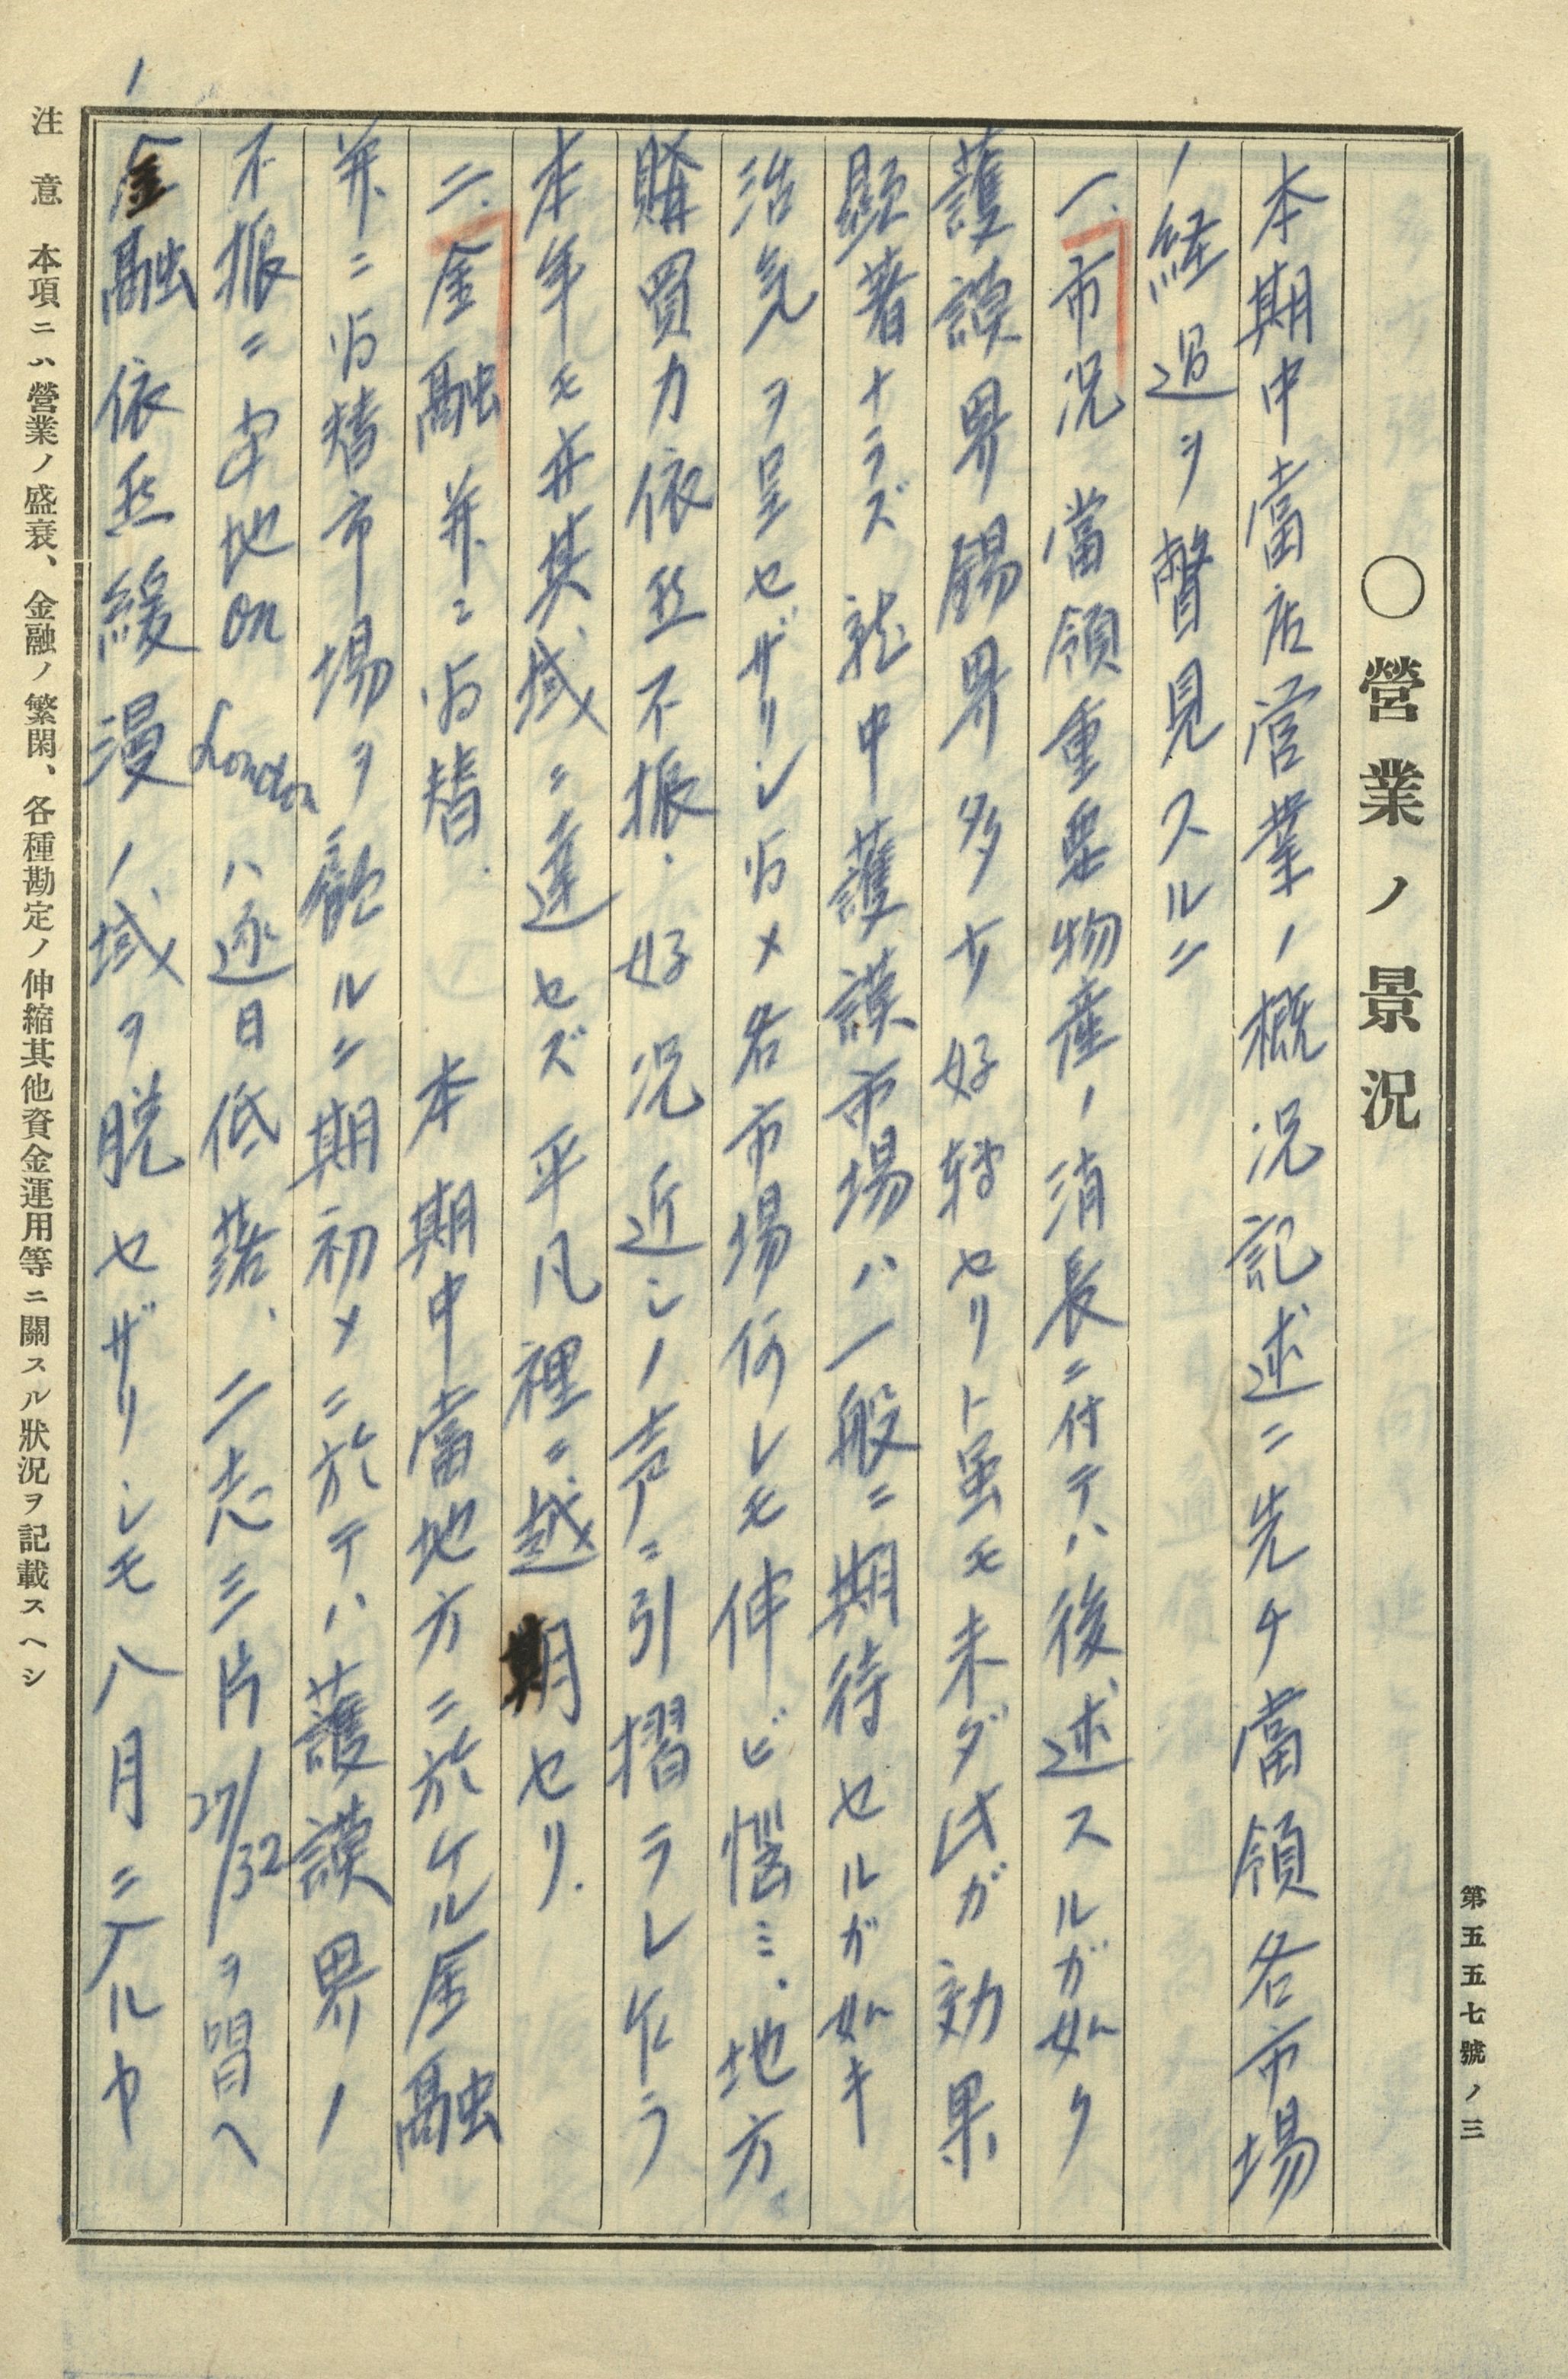 第五五七號ノ三
〇營業ノ景況
本期中當店営業ノ概況記述ニ先チ當領各市場
ノ経過ヲ瞥見スルニ
一、市況 當領重要物産ノ消長ニ付テハ後述スルガ如ク
護謨界錫界多少好轉セリト虽モ未ダ之ガ効果
顕著ナラズ就中護謨市場ハ一般ニ期待セルガ如キ
活気ヲ呈セザリシ為メ各市場何レモ伸ビ悩ミ、地方
購買力依然不振、好況近シノ声ニ引摺ラレ乍ラ
本年モ亦其域ニ達セズ平凡裡ニ越期セリ、
二、金融并ニ為替、 本期中當地方ニ於ケル金融
并ニ為替市場ヲ観ルニ期初メニ於テハ護謨界ノ
不振ニ当地on Londonハ逐日低落、二志三片27/32ヲ唱ヘ
金融依然緩漫ノ域ヲ脱セザリシモ八月ニ入ルヤ
注意 本項ニハ營業ノ盛衰、金融ノ繁閑、各種勘定ノ伸縮其他資金運用等ニ關スル狀況ヲ記載スヘシ